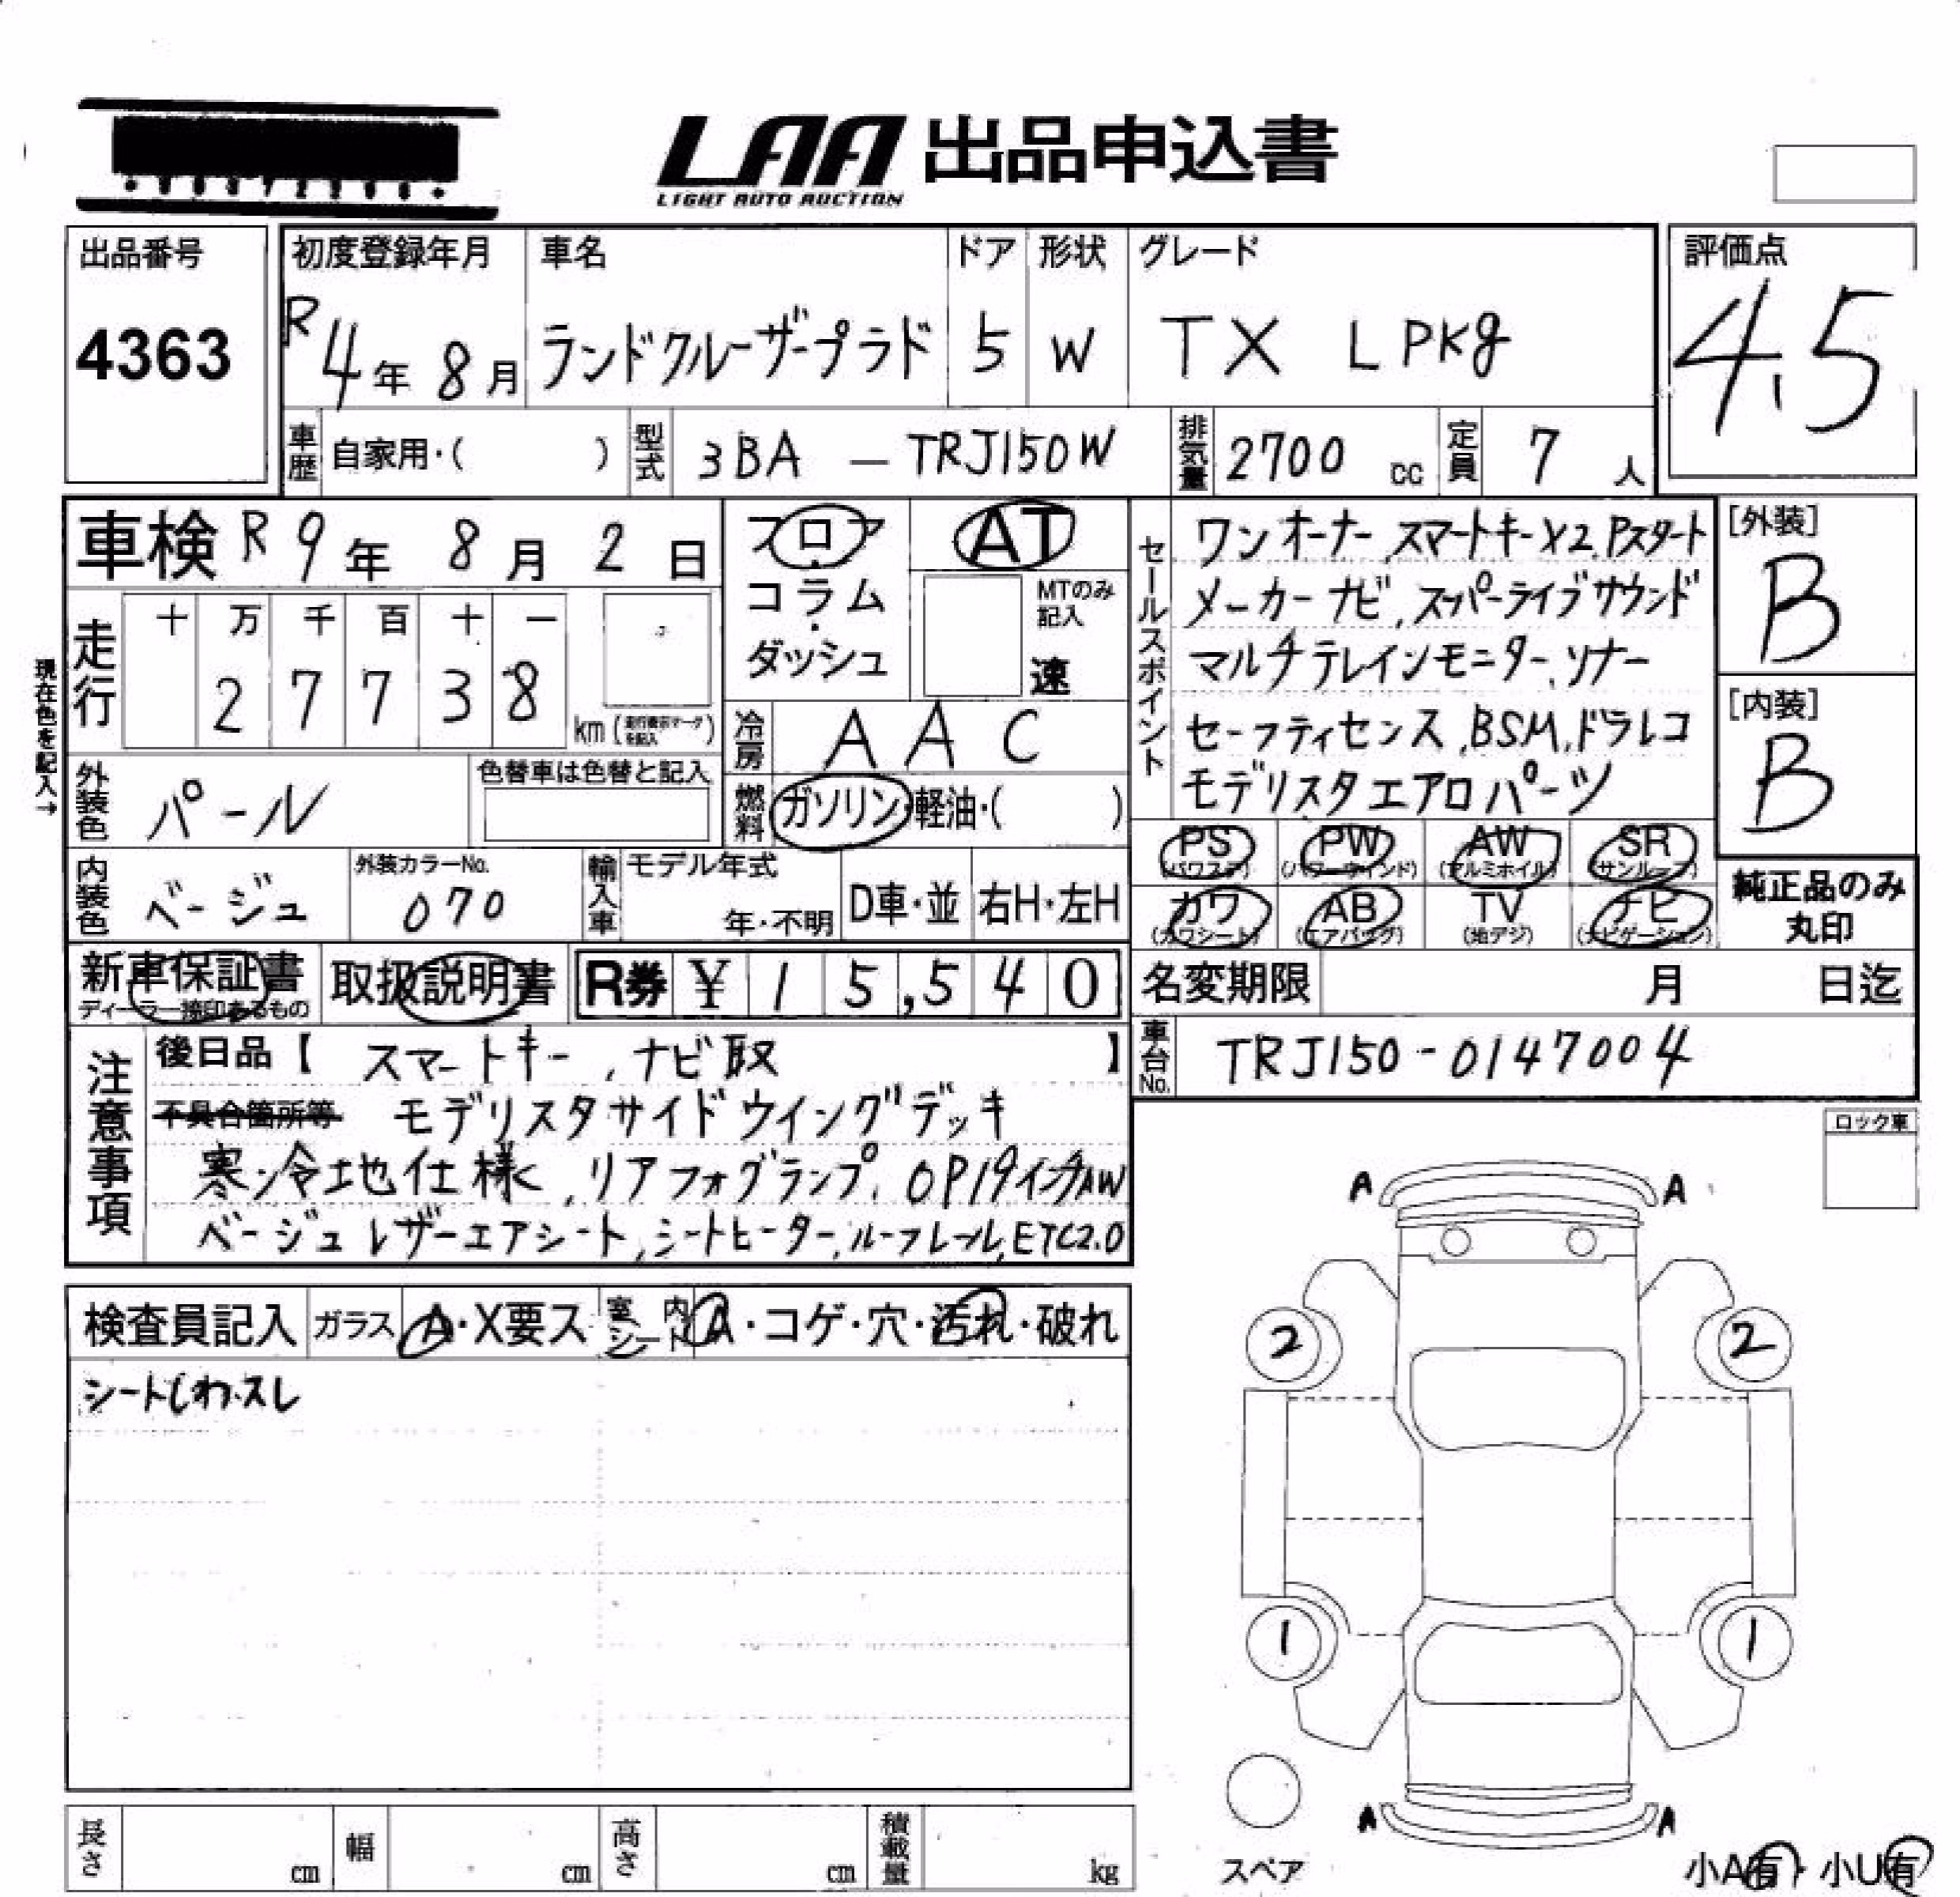 LAA 出品申込書
LIGHT AUTO AUCTION
出品番号
4363
初度登録年月
R4年 8月
車名
ランドクルーザープラド
ドア
5
形状
W
グレード
TX LPKg
評価点
4.5
車歴 自家用・( )
型式 3BA - TRJ150W
排気量 2700 cc
定員 7 人
車検 R9年 8月 2日
フロア・コラム・ダッシュ
AT
MTのみ記入
速
セールスポイント
ワンオーナー スマートキーX2.Pスタート
メーカーナビ,スーパーライブサウンド
マルチテレインモニター,ソナー
セーフティセンス,BSM,ドラレコ
モデリスタエアロパーツ
[外装]
B
[内装]
B
現在色を記入→
走行
十 万 千 百 十 一
2 7 7 3 8
km (走行表示マークを記入)
冷房 AAC
外装色 パール
色替車は色替と記入
燃料 ガソリン・軽油・( )
PS (パワステ)
PW (パワーウィンド)
AW (アルミホイル)
SR (サンルーフ)
カワ (カワシート)
AB (エアバッグ)
TV (地デジ)
ナビ (ナビゲーション)
純正品のみ丸印
内装色 ベージュ
外装カラーNo.
070
輸入車 モデル年式
年・不明
D車・並
右H・左H
新車保証書
ディーラー捺印あるもの
取扱説明書
R券 ¥ 15,540
名変期限 月 日迄
車台No. TRJ150-0147004
注意事項
後日品【 スマートキー,ナビ取 】
不具合箇所等 モデリスタサイドウイングデッキ
寒冷地仕様,リアフォグランプ,OP19インチAW
ベージュレザーエアシート,シートヒーター,ルーフレール,ETC2.0
ロック車
検査員記入 ガラス A・X要ス 室内シート A・コゲ・穴・汚れ・破れ
シートしわ.スレ
A A
2 2
1 1
A A
スペア
長さ cm 幅 cm 高さ cm 積載量 kg
小A有・小U有